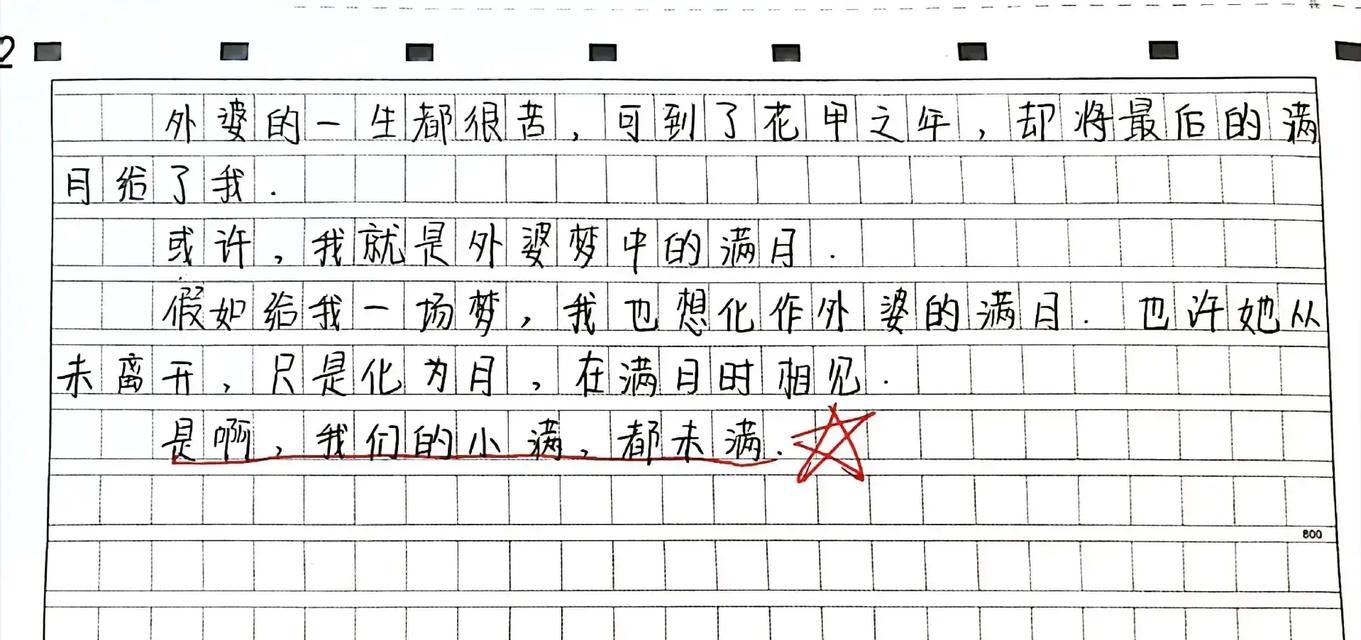 外婆的一生都很苦，可到了花甲之年，却将最后的满
月给了我.
或许，我就是外婆梦中的满月.
假如给我一场梦，我也想化作外婆的满月.也许她从
未离开，只是化为月，在满月时相见.
是啊，我们的小满，都未满.
800